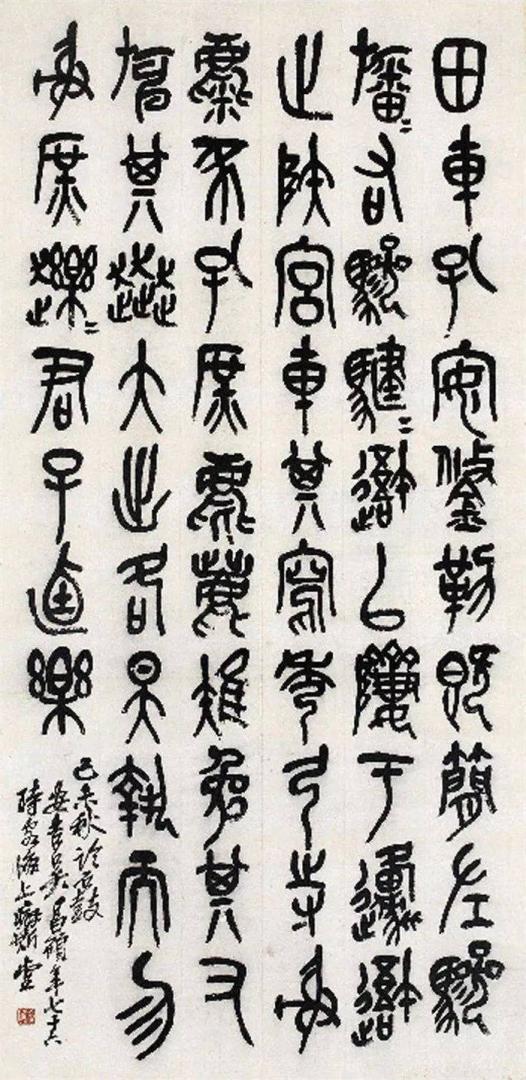 田車孔安鋚勒既簡左驂
旛=右驂騝=䢦以隮于邍䢦
止陝宮車其寫秀弓寺射
麋豕孔庶麀鹿雉兔其又
其奔大出各昊執而勿
射庶趯=君子逌樂
己未秋臨石鼓
安吉吳昌碩年七十六
時客海上癖斯堂